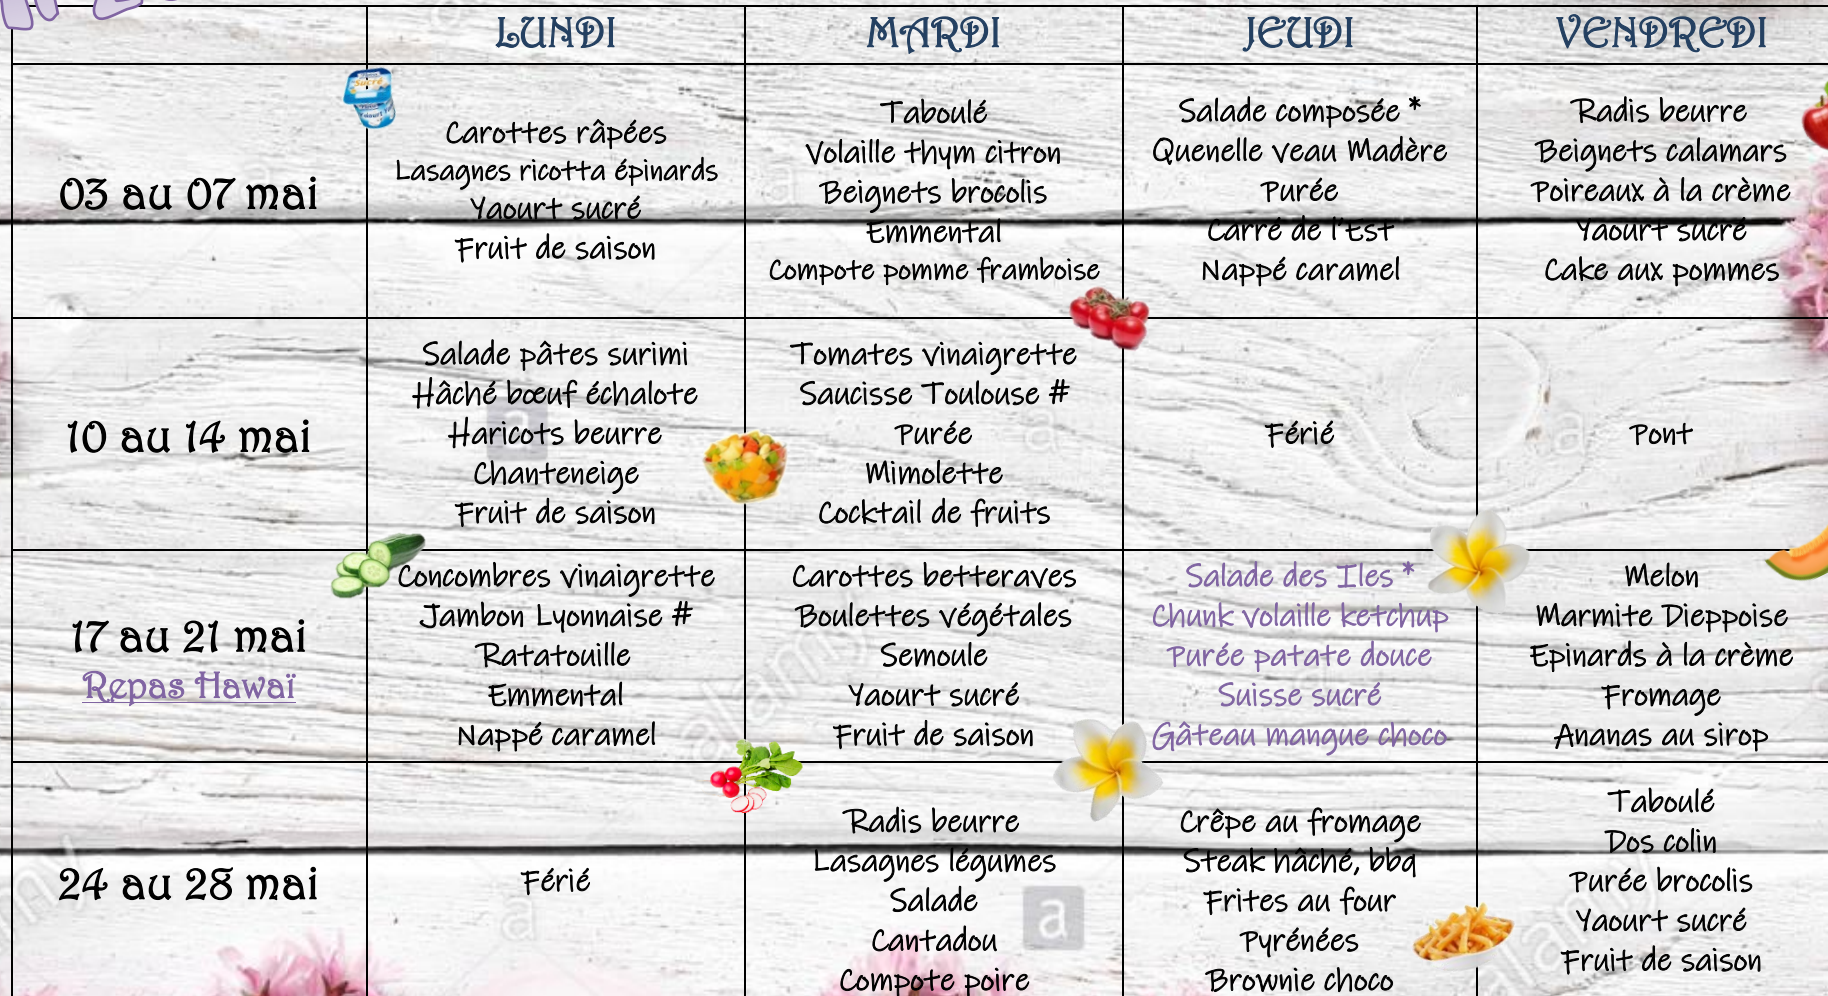 LUNDI
MARDI
JEUDI
VENDREDI
03 au 07 mai
Carottes râpées
Lasagnes ricotta épinards
Yaourt sucré
Fruit de saison
Taboulé
Volaille thym citron
Beignets brocolis
Emmental
Compote pomme framboise
Salade composée *
Quenelle veau Madère
Purée
Carré de l'Est
Nappé caramel
Radis beurre
Beignets calamars
Poireaux à la crème
Yaourt sucré
Cake aux pommes
10 au 14 mai
Salade pâtes surimi
Hâché bœuf échalote
Haricots beurre
Chanteneige
Fruit de saison
Tomates vinaigrette
Saucisse Toulouse #
Purée
Mimolette
Cocktail de fruits
Férié
Pont
17 au 21 mai
Repas Hawaï
Concombres vinaigrette
Jambon Lyonnaise #
Ratatouille
Emmental
Nappé caramel
Carottes betteraves
Boulettes végétales
Semoule
Yaourt sucré
Fruit de saison
Salade des Iles *
Chunk volaille ketchup
Purée patate douce
Suisse sucré
Gâteau mangue choco
Melon
Marmite Dieppoise
Epinards à la crème
Fromage
Ananas au sirop
24 au 28 mai
Férié
Radis beurre
Lasagnes légumes
Salade
Cantadou
Compote poire
Crêpe au fromage
Steak hâché, bbq
Frites au four
Pyrénées
Brownie choco
Taboulé
Dos colin
Purée brocolis
Yaourt sucré
Fruit de saison
alamy
a